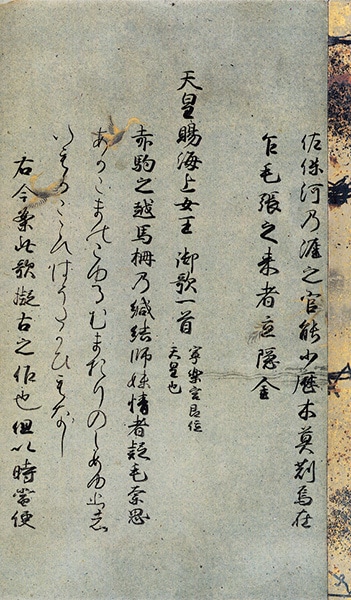 佐保河乃涯之官能少歴木莫苅焉在
乍毛張之来者立隠金
天皇賜海上女王御歌一首
寧樂宮即位
天皇也
赤駒之越馬柵乃緘結師妹情者疑毛奈思
あかこまのこゆるむまをりのしめゆひし
いもかこゝろはうたかひもなし
右今案此歌擬古之作也但以時當便